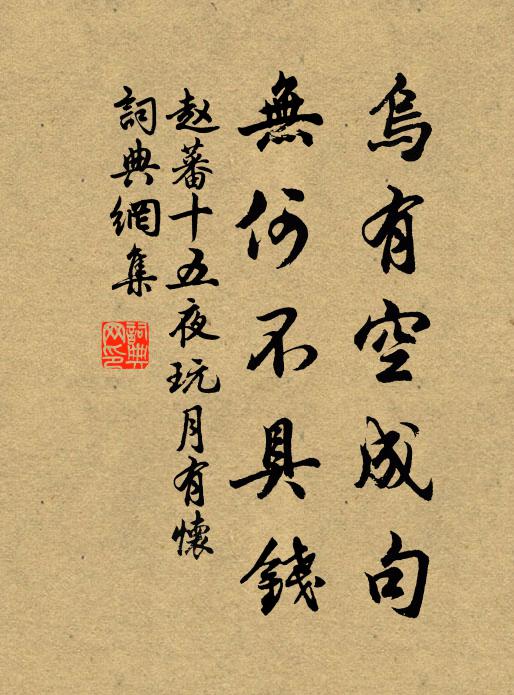 烏有空成句
無何不具錢
赵蕃十五夜玩月有懷
詞典網集
詞典网印